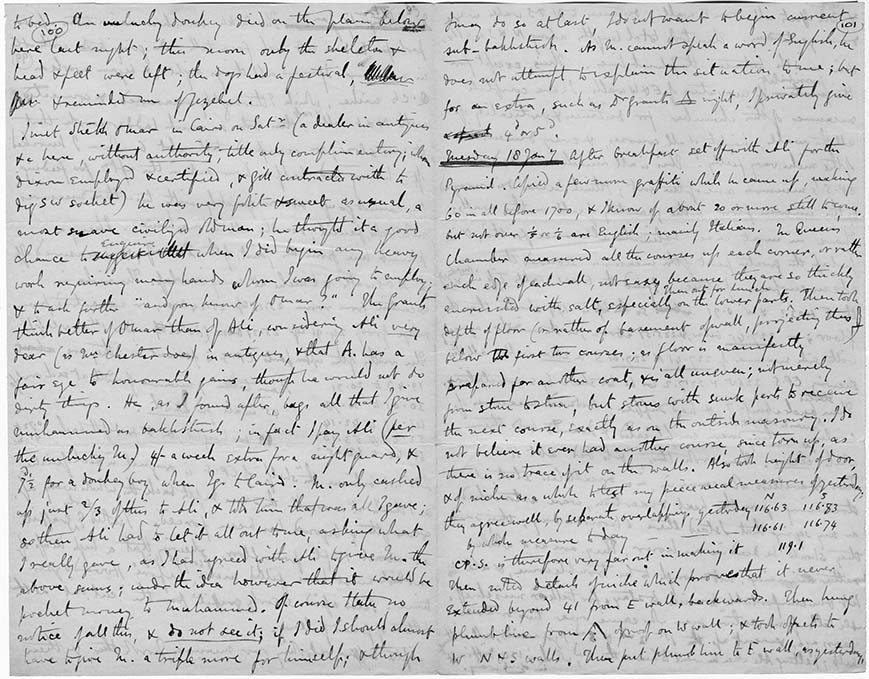 100
to bed. An unlucky donkey died on the plain below
here last night; this morn only the skeleton &
head & feet were left; the dogs had a festival,
& reminded me of Jezebel.
I met Sheikh Omar in Cairo on Satʸ (a dealer in antiques
&c here, without authority, title only complimentary; whom
Dixon employed & certified, & Gill contracted with to
dig SW socket) he was very polite & sweet as usual, a
most suave civilized old man; he thought it a good
chance to enquire when I did begin any heavy
work requiring many hands whom I was going to employ;
& to ask further "and you know of Omar?" The Grants
think better of Omar than of Ali, considering Ali very
dear (as Mr Chester does) in antiques, & that A. has a
fair eye to honourable gains, though he would not do
dirty things. He, as I found after, bags all that I give
Muhammed as bakhshish; in fact I pay Ali (per
the unlucky M.) 4/- a week extra for a night guard, &
for a donkey boy when I go to Cairo: M. only cashed
up just 2/3 of this to Ali, & told him that was all I gave;
so then Ali had to let it all out to me, asking what
I really gave, as I had agreed with Ali to give M. the
above sums; under the idea however that it would be
pocket money to Muhammed. Of course I take no
notice of all this, & do not see it; if I did I should almost
have to give M. a trifle more for himself; & though
101
I may do so at last I do not want to begin current
sub-bakhshish. As M. cannot speak a word of English, he
does not attempt to explain the situation to me; but
for an extra, such as Dr Grant's night, I privately give
4ᵈ or 5ᵈ.
Tuesday 18 Janʸ After breakfast set off with Ali for the
Pyramid. Copied a few more graffiti which he came up, making
60 in all before 1700, & I know of about 20 or more still to come.
but not over 1/5 or 1/6 are English; mainly Italians. In Queen's
Chamber measured all the courses up each corner, or rather
each edge of each wall, not easy because they are so thickly
Then out for lunch
encrusted with salt, especially on the lower parts. Then took
depth of floor (or rather of basement of wall, projecting thus)
below the first two courses; as floor is manifestly
prepared for another coat, & is all uneven; not merely
from stone to stone, but stones with sunk parts to receive
the next course, exactly as on the outside masonry. I do
not believe it ever had another course, since torn up, as
there is no trace of it on the walls. Also took height of door,
& of niche as a whole to test my piecemeal measures of yesterday;
N S
they agree well, by separate overlapping yesterday 116.63 116.83
by whole measure to day — — — 116.61 116.74
C.P.S. is therefore very far out in making it 119.1
Then noted details of niche which proves that it never
extended beyond 41 from E wall, backwards. Then hung
plumb line from roof on W wall; & took offsets to
W. N & S walls. Then put plumb line to E wall, as yesterday,